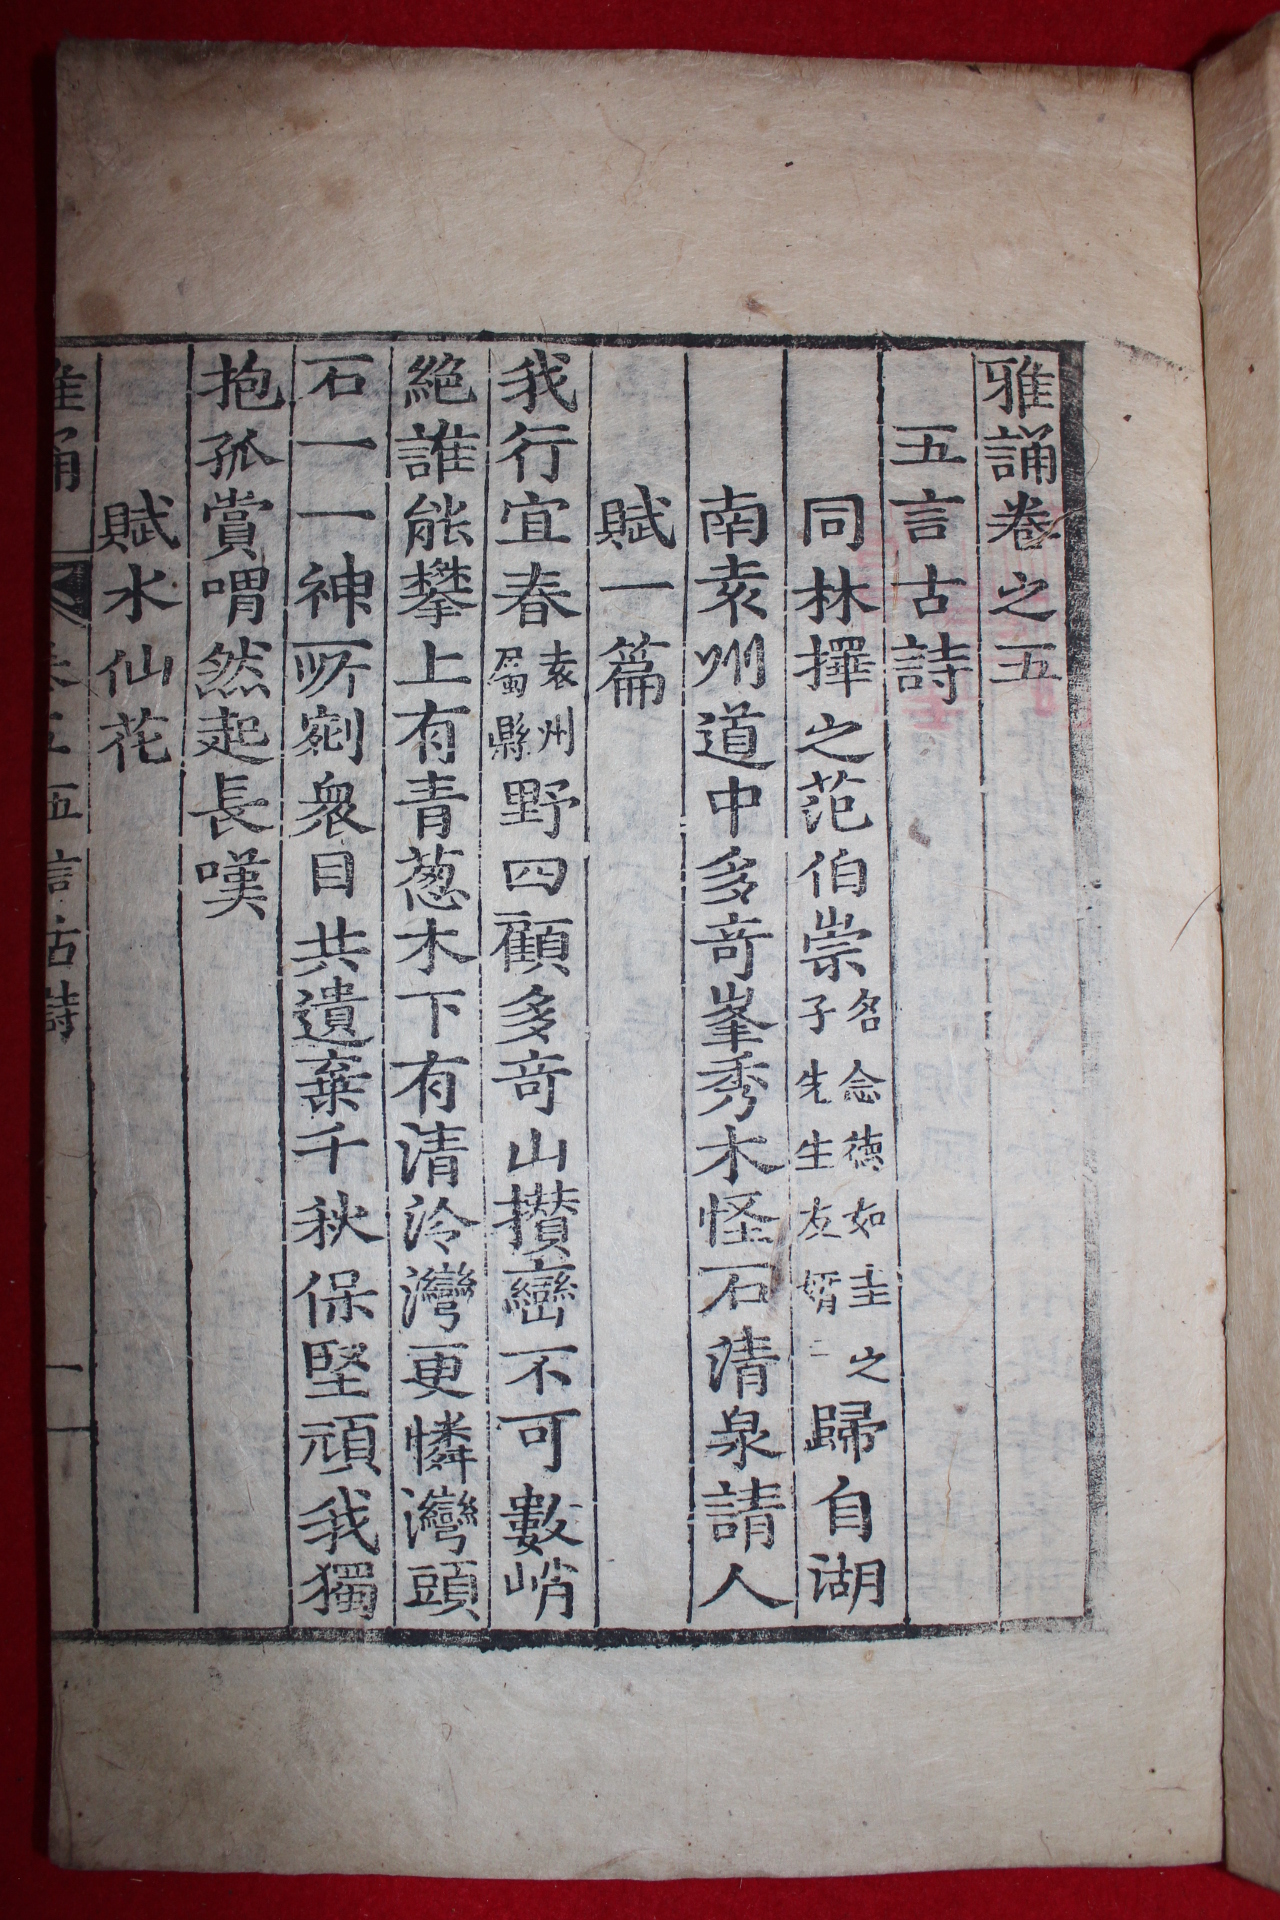 雅誦卷之五
五言古詩
同林擇之范伯崇名念德如圭之子先生友婿二歸自湖
南袁州道中多奇峯秀木怪石清泉請人
賦一篇
我行宜春袁州屬縣野四顧多奇山攢巒不可數峭
絕誰能攀上有青葱木下有清泠灣更憐灣頭
石一一神所剜衆目共遺棄千秋保堅頑我獨
抱孤賞喟然起長嘆
賦水仙花
雅誦 卷五 五言古詩 一